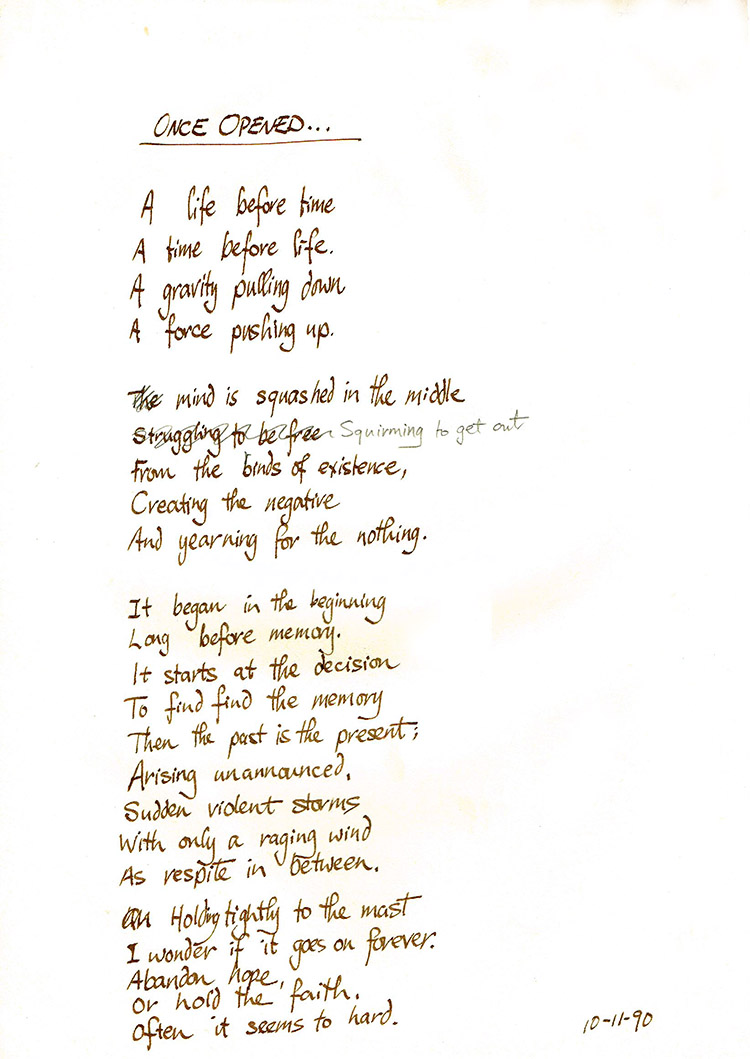 ONCE OPENED...
A life before time
A time before life.
A gravity pulling down
A force pushing up.
The mind is squashed in the middle
Struggling to be free Squirming to get out
From the binds of existence,
Creating the negative
And yearning for the nothing.
It began in the beginning
Long before memory.
It starts at the decision
To find find the memory
Then the past is the present;
Arising unannounced.
Sudden violent storms
With only a raging wind
As respite in between.
Holding tightly to the mast
I wonder if it goes on forever.
Abandon hope,
Or hold the faith.
Often it seems to hard.
10-11-90